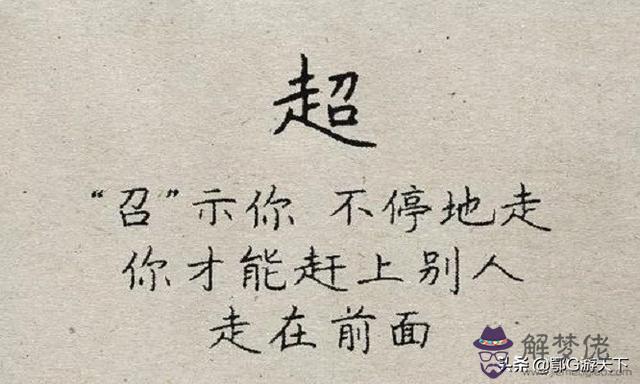 超
“召”示你 不停地走
你才能赶上别人
走在前面
解梦佬
头条@鄂G游天下